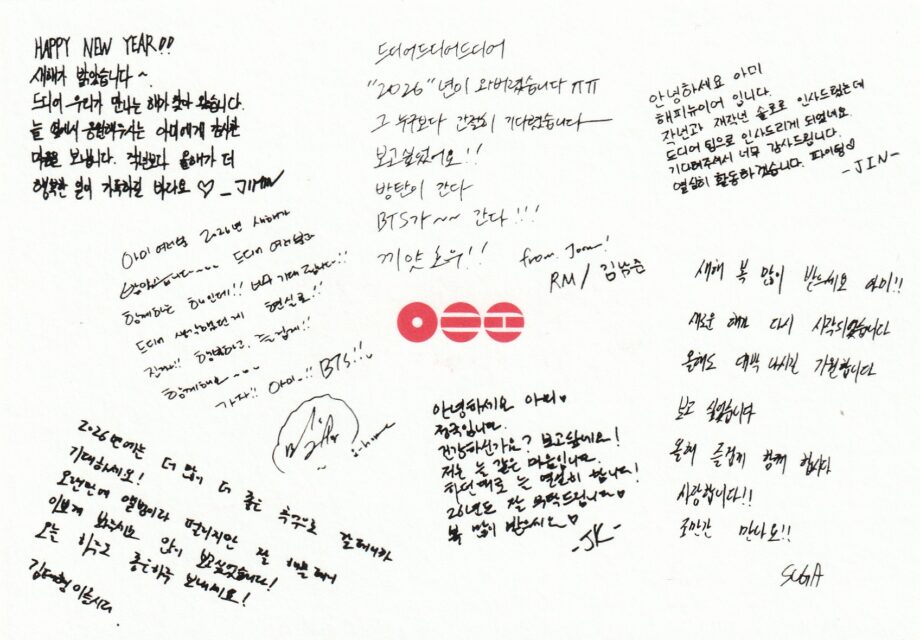 HAPPY NEW YEAR!!
새해가 밝았습니다~
드디어 우리가 만나는 해가 찾아 왔습니다.
늘 옆에서 응원해주시는 아미에게 감사한
마음을 보냅니다. 작년보다 올해가 더
행복한 일이 가득하길 바라요 ♡ _ JIMIN
드디어드디어드디어
"2026"년이 와버렸습니다 ㅠㅠ
그 누구보다 간절히 기다렸습니다
보고싶었어요!!
방탄이 간다
BTS가~~ 간다!!!
끼얏호우!!
from. Joon!
RM / 김남준
안녕하세요 아미
해피뉴이어 입니다.
작년과 재작년 솔로로 인사드렸는데
드디어 팀으로 인사드리게 되었네요.
기다려주셔서 너무 감사드립니다.
열심히 활동하겠습니다. 파이팅♡
-JIN-
아미 여러분 2026년 새해가
밝았습니다~~~ 드디어 여러분과
함께하는 해인데!! 너무 기대됩니다!!
드디어 생각했던게 현실로!!
진짜!! 행복하고, 즐겁게!!
함께해요~~~
가자!! 아미~!! BTS!!
j-hope
새해 복 많이 받으세요 아미!!
새로운 해가 다시 시작되었습니다
올해도 대박 나시길 기원합니다
보고 싶었습니다
올해 즐겁게 함께 합시다
사랑합니다!!
조만간 만나요!!
SUGA
안녕하세요 아미♥
정국입니다.
건강하신가요? 보고싶네요!
저는 늘 같은 마음입니다.
하던대로 늘 열심히 합니다!
26년도 잘 부탁드립니다♥
복 많이 받으세요♥
-JK-
2026년에는 더 많이 더 좋은 추억으로
기대하세요!
오랜만에 앨범이라 떨리지만 잘
이쁘게 봐주세요 많이 보고싶었습니다!
오늘 하루도 좋은하루 보내세요!
김태형이